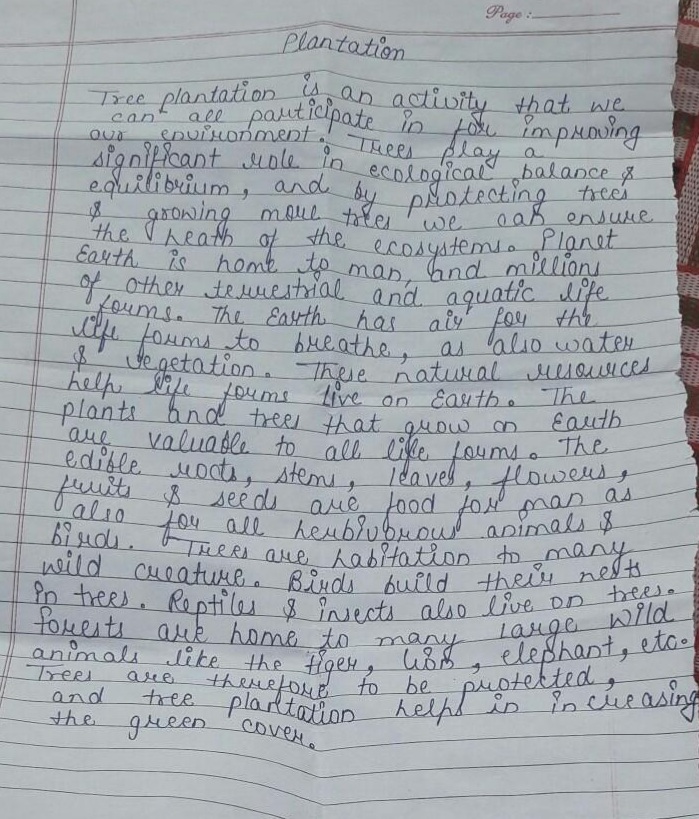 Page :
Plantation
Tree plantation is an activity that we
can all participate in for improving
our environment. Trees play a
significant role in ecological balance &
equilibrium, and by protecting trees
& growing more trees we can ensure
the heath of the ecosystems. Planet
Earth is home to man, and millions
of other terrestrial and aquatic life
forms. The Earth has air for the
life forms to breathe, as also water
& vegetation. These natural resources
help life forms live on Earth. The
plants and trees that grow on Earth
are valuable to all life forms. The
edible roots, stems, leaves, flowers,
fruits & seeds are food for man as
also for all herbivorous animals &
birds. Trees are habitation to many
wild creature. Birds build their nests
in trees. Reptiles & insects also live on trees.
forests are home to many large wild
animals like the tiger, lion, elephant, etc.
Trees are therefore to be protected,
and tree plantation helps in increasing
the green cover.